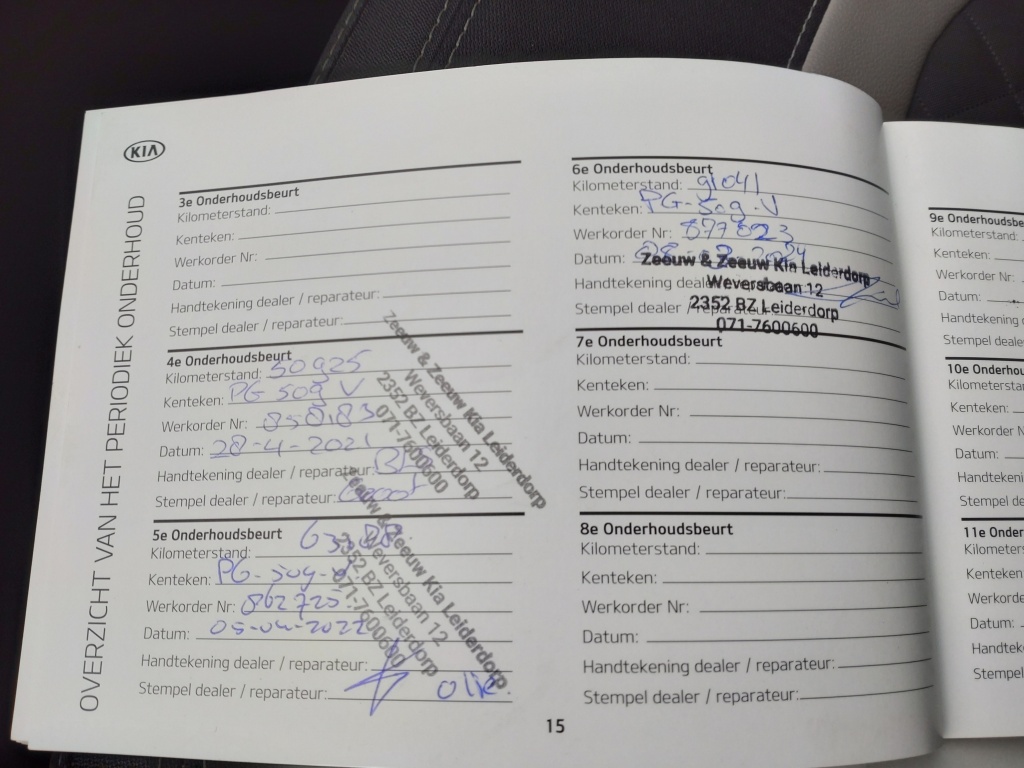 KIA
OVERZICHT VAN HET PERIODIEK ONDERHOUD
3e Onderhoudsbeurt
Kilometerstand:
Kenteken:
Werkorder Nr:
Datum:
Handtekening dealer / reparateur:
Stempel dealer / reparateur:
4e Onderhoudsbeurt
Kilometerstand: 50925
Kenteken: PG 509 V
Werkorder Nr: 850183
Datum: 28-4-2021
Handtekening dealer / reparateur:
Stempel dealer / reparateur: Groot
Zeeuw & Zeeuw Kia Leiderdorp
Weversbaan 12
2352 BZ Leiderdorp
071-7600600
5e Onderhoudsbeurt
Kilometerstand:
Kenteken: PG-509-V
Werkorder Nr: 862725
Datum: 05-04-2022
Handtekening dealer / reparateur:
Stempel dealer / reparateur: olie.
Zeeuw & Zeeuw Kia Leiderdorp
Weversbaan 12
2352 BZ Leiderdorp
071-7600600
6e Onderhoudsbeurt
Kilometerstand: 91041
Kenteken: PG-509-V
Werkorder Nr: 877823
Datum:
Handtekening dealer
Stempel dealer / reparateur:
Zeeuw & Zeeuw Kia Leiderdorp
Weversbaan 12
2352 BZ Leiderdorp
071-7600600
7e Onderhoudsbeurt
Kilometerstand:
Kenteken:
Werkorder Nr:
Datum:
Handtekening dealer / reparateur:
Stempel dealer / reparateur:
8e Onderhoudsbeurt
Kilometerstand:
Kenteken:
Werkorder Nr:
Datum:
Handtekening dealer / reparateur:
Stempel dealer / reparateur:
15
9e Onderhoudsbe
Kilometerstand:
Kenteken:
Werkorder Nr:
Datum:
Handtekening d
Stempel deale
10e Onderhou
Kilometerstan
Kenteken:
Werkorder N
Datum:
Handtekenin
Stempel de
11e Onder
Kilometers
Kenteken
Werkorde
Datum:
Handtek
Stempe